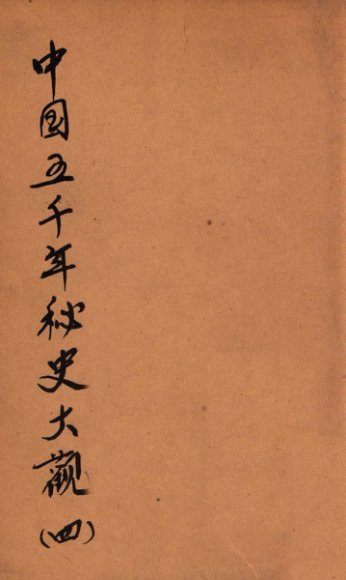 中国五千年秘史大觀(四)